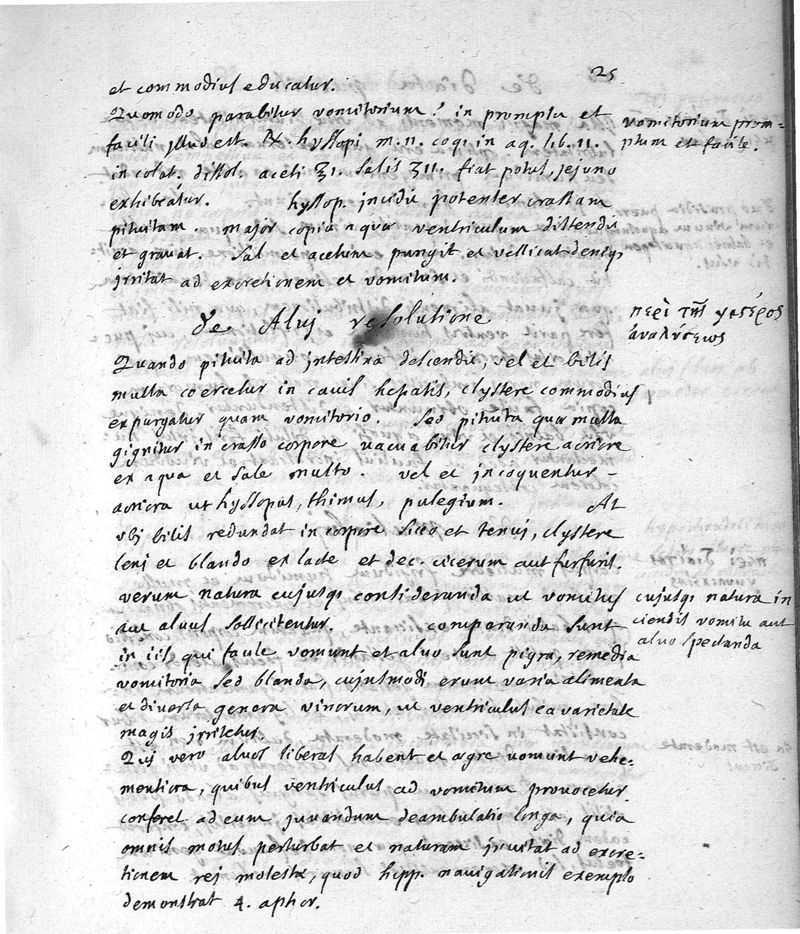 25
et commodius educatur.
Quomodo parabitur vomitorium? in promptu et
facili illud est. ℞. hyssopi m. 11. coqi in aq. lib. 11.
in colat. dissol. aceti ʒ1. salis ʒ11. fiat potus, jejuno
exhibeatur. hyssop. incidit potenter crassam
pituitam major copia aquæ ventriculum distendit
et gravat. Sal et acetum pungit et vellicat deniqs
irritat ad excretionem et vomitum.
vomitorium prom=
ptum et facile.
de Alvj resolutione
περὶ τῆς γαστέρος
ἀναλύσεως
Quando pituita ad intestina descendit, vel et bilis
multa coercetur in cavis hepatis, clystere commodius
expurgatur quam vomitorio. Sed pituita quæ multa
gignitur in crasso corpore vacuabitur clystere acriore
ex aqua et sale multo. vel et incoquentur -
acriora ut hyssopus, thimus, pulegium. At
ubj bilis redundat in corpore sicco et tenuj, clystere
leni et blando ex lacte et dec. cicerum aut furfuris.
verum natura cujusqs consideranda ut vomitus
aut alvus sollicitentur. comparanda sunt
in iis qui facile vomunt et alvo sunt pigra, remedia
vomitoria sed blanda, cujusmodi erunt varia alimenta
et diversa genera vinorum, ut ventriculus ea varietate
magis irritetur.
cujusqs natura in
ciendis vomitu aut
alvo spectanda
Quj vero alvos liberas habent et ægre vomunt vehe=
mentiora, quibus ventriculus ad vomitum provocetur.
conferet ad eum juvandum deambulatio longa, quia
omnis motus perturbat et naturam incitat ad excre=
tionem rej molestæ, quod hipp. navigationis exemplo
demonstrat 4. aphor.